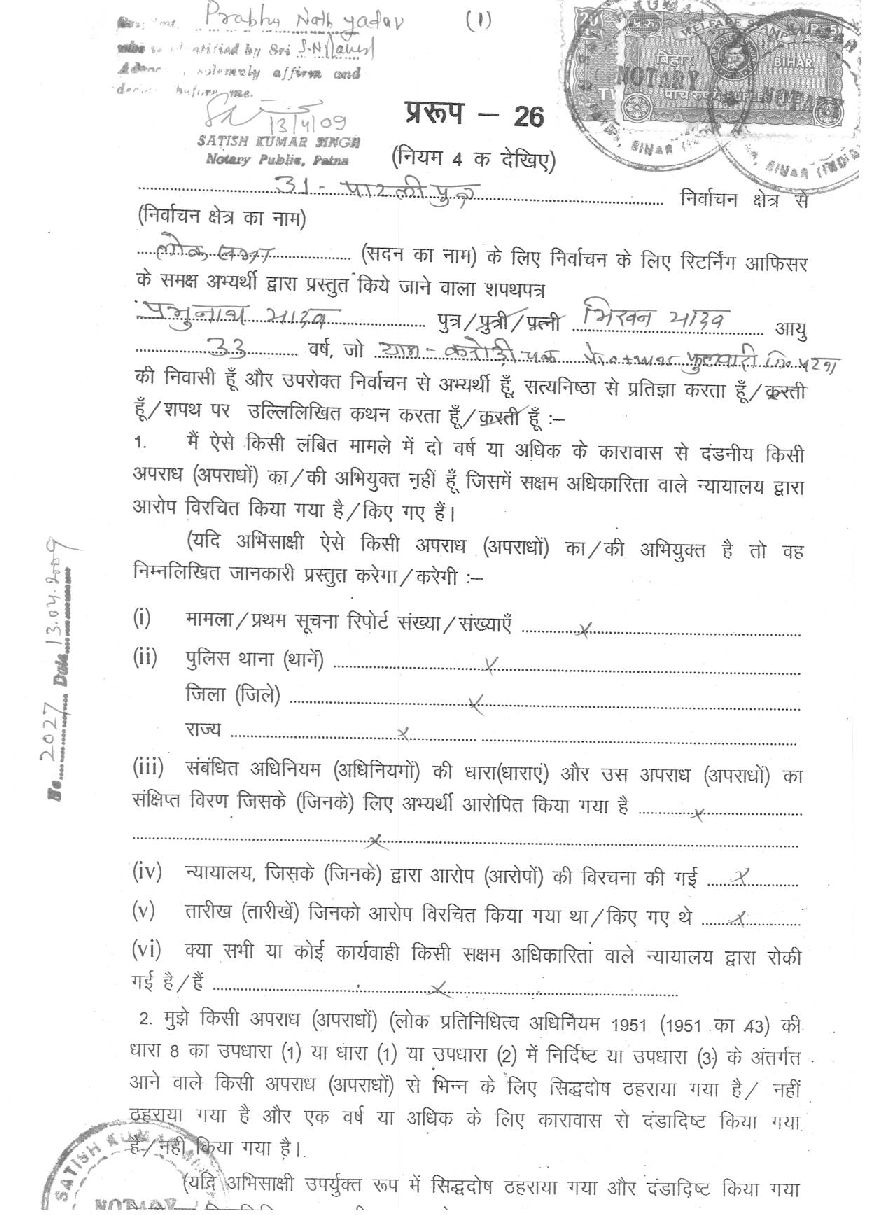 Prabhu Nath yadav
(1)
identified by Sri S.N.
solemnly affirm and
before me.
13/4/09
SATISH KUMAR SINGH
Notary Public, Patna
NOTARY
बिहार
BIHAR
NOTARY
BIHAR (INDIA)
प्ररूप – 26
(नियम 4 क देखिए)
31 - पाटलीपुत्र निर्वाचन क्षेत्र से
(निर्वाचन क्षेत्र का नाम)
लोक सभा (सदन का नाम) के लिए निर्वाचन के लिए रिटर्निंग आफिसर
के समक्ष अभ्यर्थी द्वारा प्रस्तुत किये जाने वाला शपथपत्र
प्रभुनाथ यादव पुत्र/पुत्री/पत्नी भिखन यादव आयु
33 वर्ष, जो ग्राम - करोड़ीचक फुलवारी
की निवासी हूँ और उपरोक्त निर्वाचन से अभ्यर्थी हूँ, सत्यनिष्ठा से प्रतिज्ञा करता हूँ/करती
हूँ/शपथ पर उल्लिलिखित कथन करता हूँ/करती हूँ :–
1. मैं ऐसे किसी लंबित मामले में दो वर्ष या अधिक के कारावास से दंडनीय किसी
अपराध (अपराधों) का/की अभियुक्त नहीं हूँ जिसमें सक्षम अधिकारिता वाले न्यायालय द्वारा
आरोप विरचित किया गया है/किए गए हैं।
(यदि अभिसाक्षी ऐसे किसी अपराध (अपराधों) का/की अभियुक्त है तो वह
निम्नलिखित जानकारी प्रस्तुत करेगा/करेगी :–
(i) मामला/प्रथम सूचना रिपोर्ट संख्या/संख्याएँ x
(ii) पुलिस थाना (थानें) x
जिला (जिले) x
राज्य x
(iii) संबंधित अधिनियम (अधिनियगों) की धारा(धाराएं) और उस अपराध (अपराधों) का
संक्षिप्त विरण जिसके (जिनके) लिए अभ्यर्थी आरोपित किया गया है x
x
(iv) न्यायालय, जिसके (जिनके) द्वारा आरोप (आरोपों) की विरचना की गई x
(v) तारीख (तारीखें) जिनको आरोप विरचित किया गया था/किए गए थे x
(vi) क्या सभी या कोई कार्यवाही किसी सक्षम अधिकारिता वाले न्यायालय द्वारा रोकी
गई है/हैं x
2. मुझे किसी अपराध (अपराधों) (लोक प्रतिनिधित्व अधिनियम 1951 (1951 का 43) की
धारा 8 का उपधारा (1) या धारा (1) या उपधारा (2) में निर्दिष्ट या उपधारा (3) के अंतर्गत
आने वाले किसी अपराध (अपराधों) से भिन्न के लिए सिद्धदोष ठहराया गया है/ नहीं
ठहराया गया है और एक वर्ष या अधिक के लिए कारावास से दंडादिष्ट किया गया
है/नही किया गया है।
(यदि अभिसाक्षी उपर्युक्त रूप में सिद्धदोष ठहराया गया और दंडादिष्ट किया गया
No. 2027 Date 13.04.2009
SATISH KUMAR
NOTARY